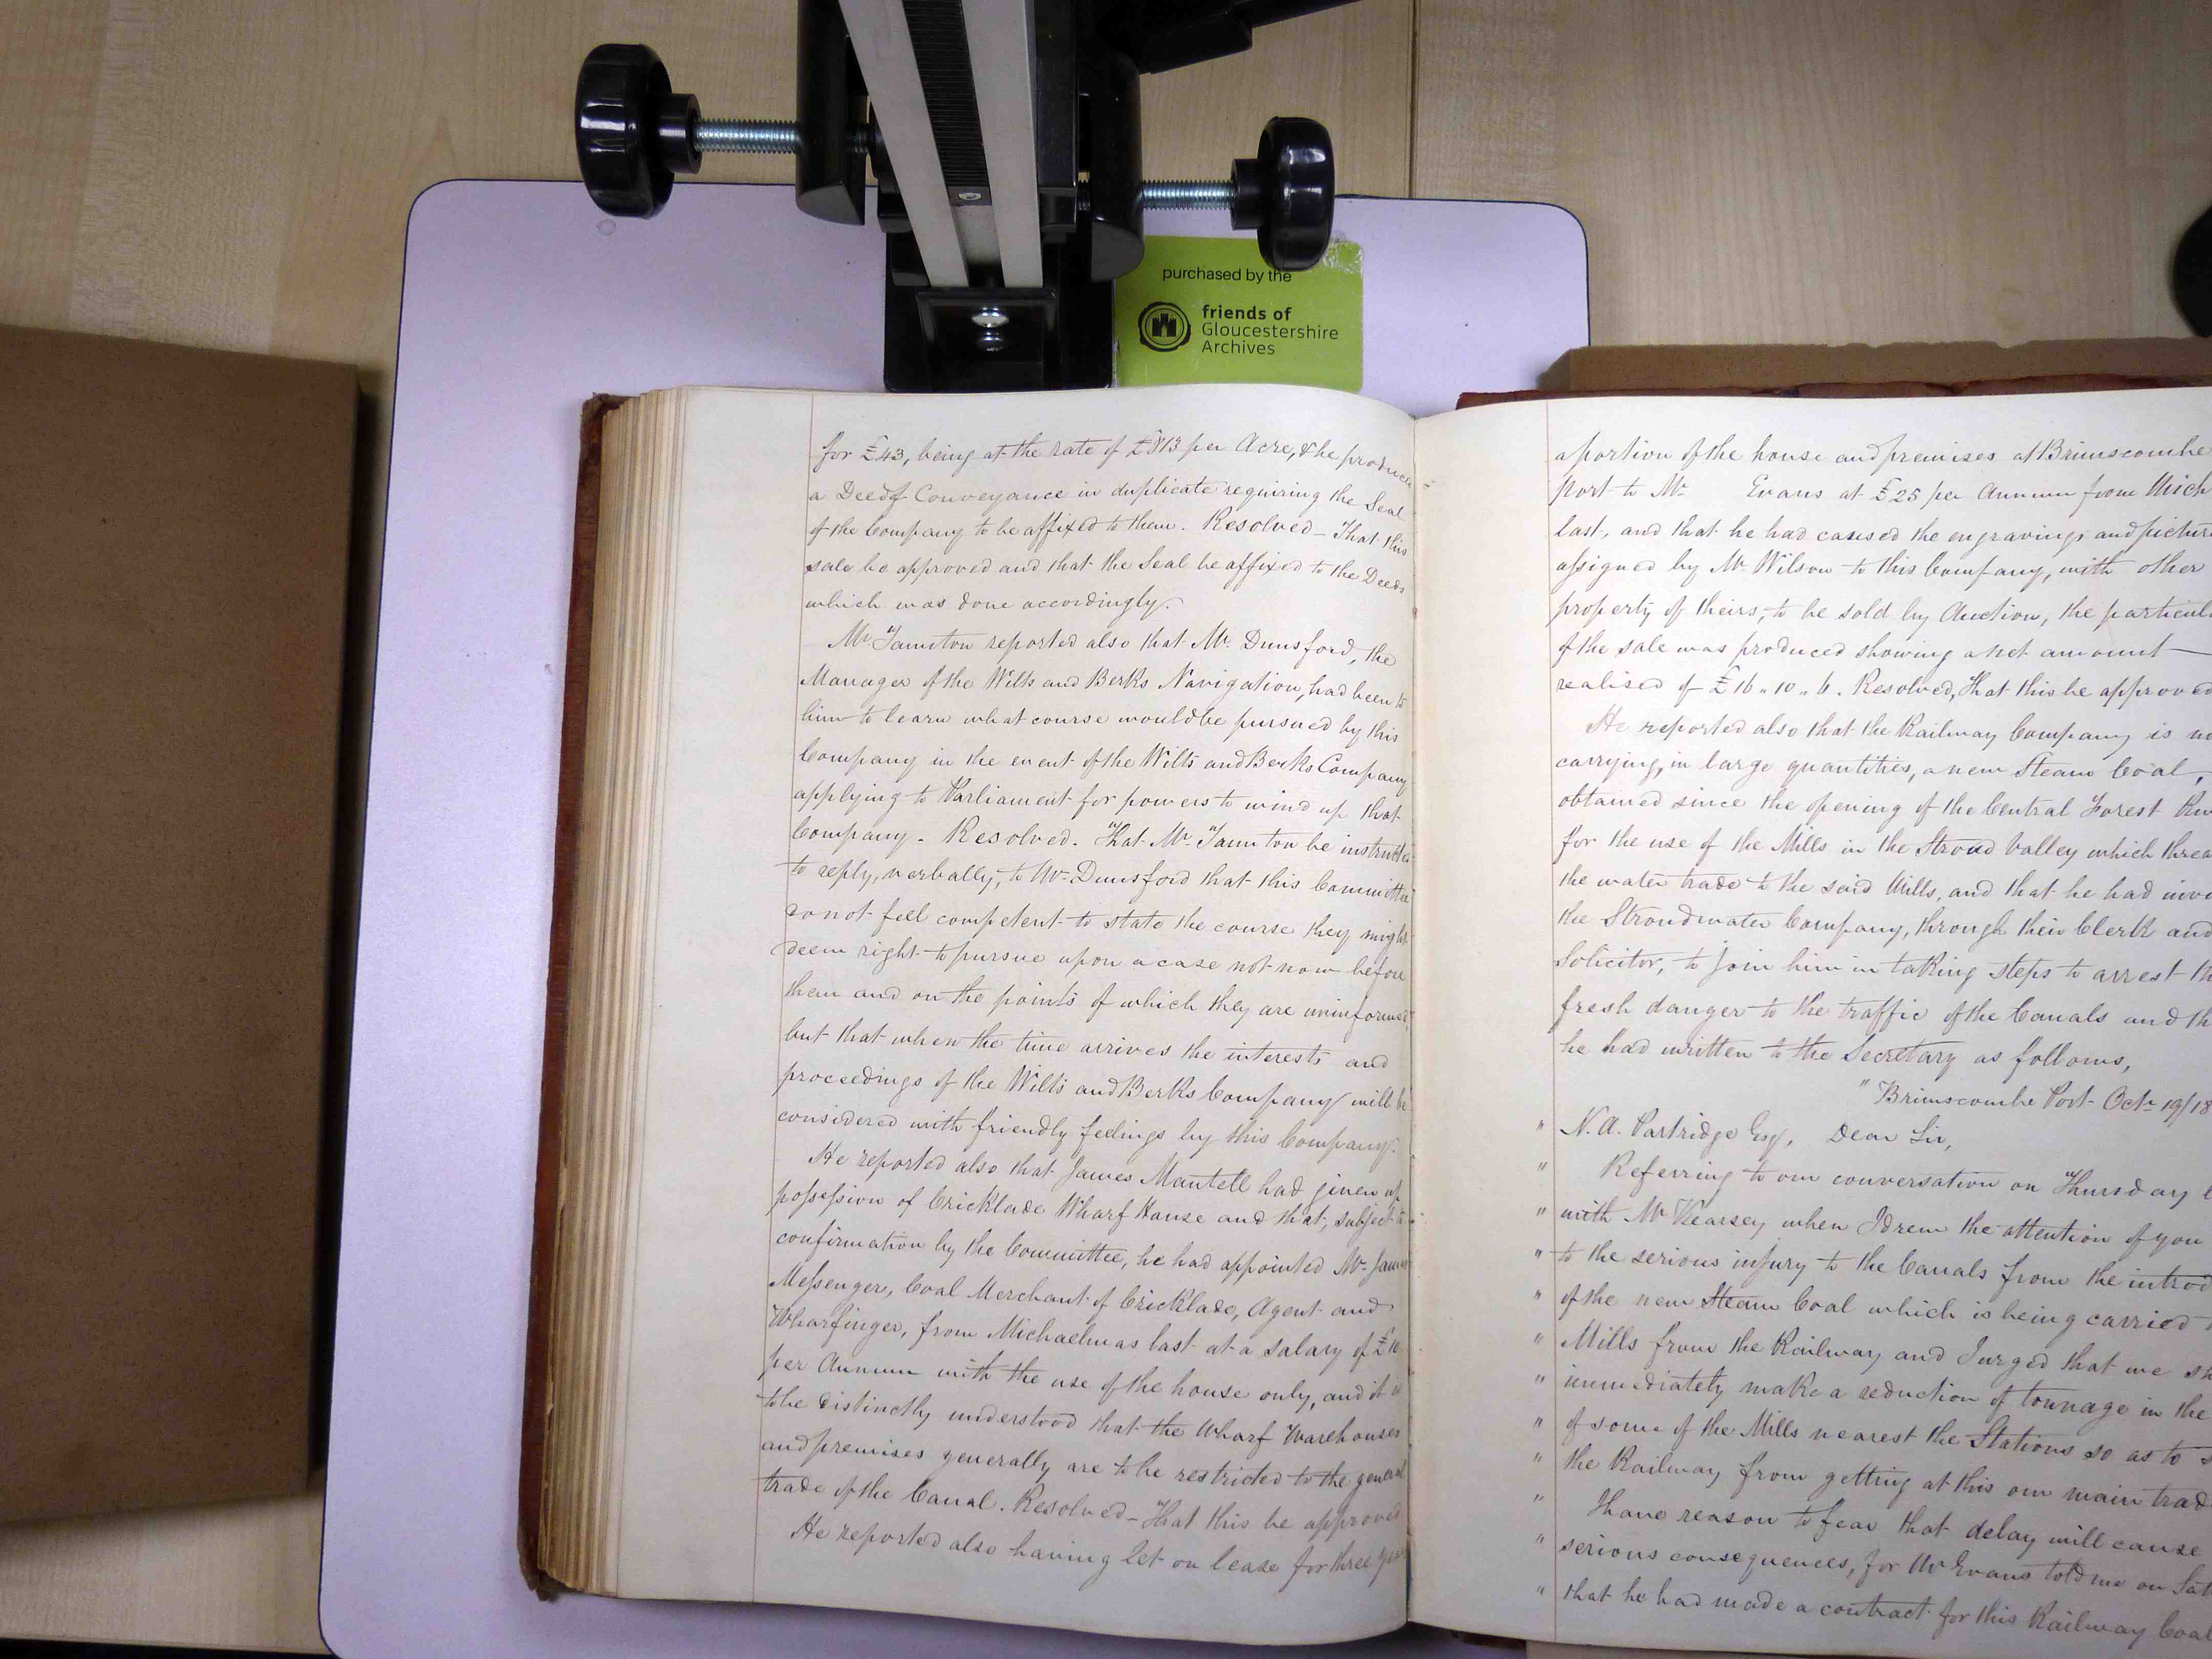 purchased by the
friends of
Gloucestershire
Archives
for £43, being at the rate of £813 per Acre, & he produces
a Deed of Conveyance in duplicate requiring the Seal
of the Company to be affixed to them. Resolved - That this
sale be approved and that the Seal be affixed to the Deeds
which was done accordingly.
Mr Taunton reported also that Mr. Dunsford, the
Manager of the Wilts and Berks Navigation, had been to
him to learn what course would be pursued by this
Company in the event of the Wilts and Berks Company
applying to Parliament for powers to wind up that
Company. Resolved. That Mr. Taunton be instructed
to reply, verbally, to Mr Dunsford that this Committee
do not feel competent to state the course they might
deem right to pursue upon a case not now before
them and on the points of which they are uninformed,
but that when the time arrives the interests and
proceedings of the Wilts and Berks Company will be
considered with friendly feelings by this Company.
He reported also that James Mantell had given up
possession of Cricklade Wharf House and that, subject to
confirmation by the Committee, he had appointed Mr. James
Messenger, Coal Merchant of Cricklade, Agent and
Wharfinger, from Michaelmas last at a salary of £10
per Annum with the use of the house only, and it is
to be distinctly understood that the Wharf Warehouses
and premises generally are to be restricted to the general
trade of the Canal. Resolved - That this be approved
He reported also having let on lease for three years
a portion of the house and premises at Brimscombe
port to Mr Evans at £25 per Annum from Mich
last, and that he had caused the engravings and picture
assigned by Mr Wilson to this Company, with other
property of theirs, to be sold by Auction, the particul
of the sale was produced showing a net amount
realised of £16.10.6. Resolved, That this be approved
He reported also that the Railway Company is no
carrying, in large quantities, a new Steam Coal,
obtained since the opening of the Central Forest
for the use of the Mills in the Stroud Valley which threa
the water trade to the said Mills, and that he had inv
the Stroudwater Company, through their Clerk and
Solicitor, to join him in taking steps to arrest th
fresh danger to the traffic of the Canals and th
he had written to the Secretary as follows,
" Brimscombe Port Octr 19/18
" N. A. Partridge Esq, Dear Sir,
" Referring to our conversation on Thursday l
" with Mr Kearsey when I drew the attention of you
" to the serious injury to the Canals from the introd
" of the new Steam Coal which is being carried
" Mills from the Railway and I urged that we sh
" immediately make a reduction of tonnage in the
" of some of the Mills nearest the Stations so as to s
" the Railway from getting at this our main trad
" I have reason to fear that delay will cause
" serious consequences, for Mr Evans told me on Sat
" that he had made a contract for this Railway Coal